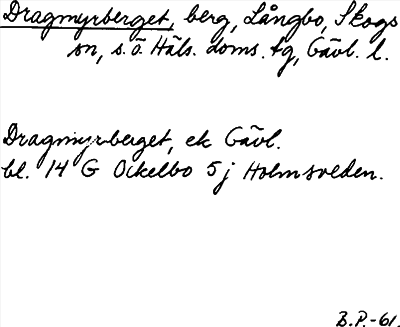 Dragmyrberget, berg, Långbo, Skogs
sn, s.ö. Häls. doms. tg, Gävl. l.
Dragmyrberget, ek Gävl.
bl. 14 G Ockelbo 5 j Holmsveden.
B.P.-61.